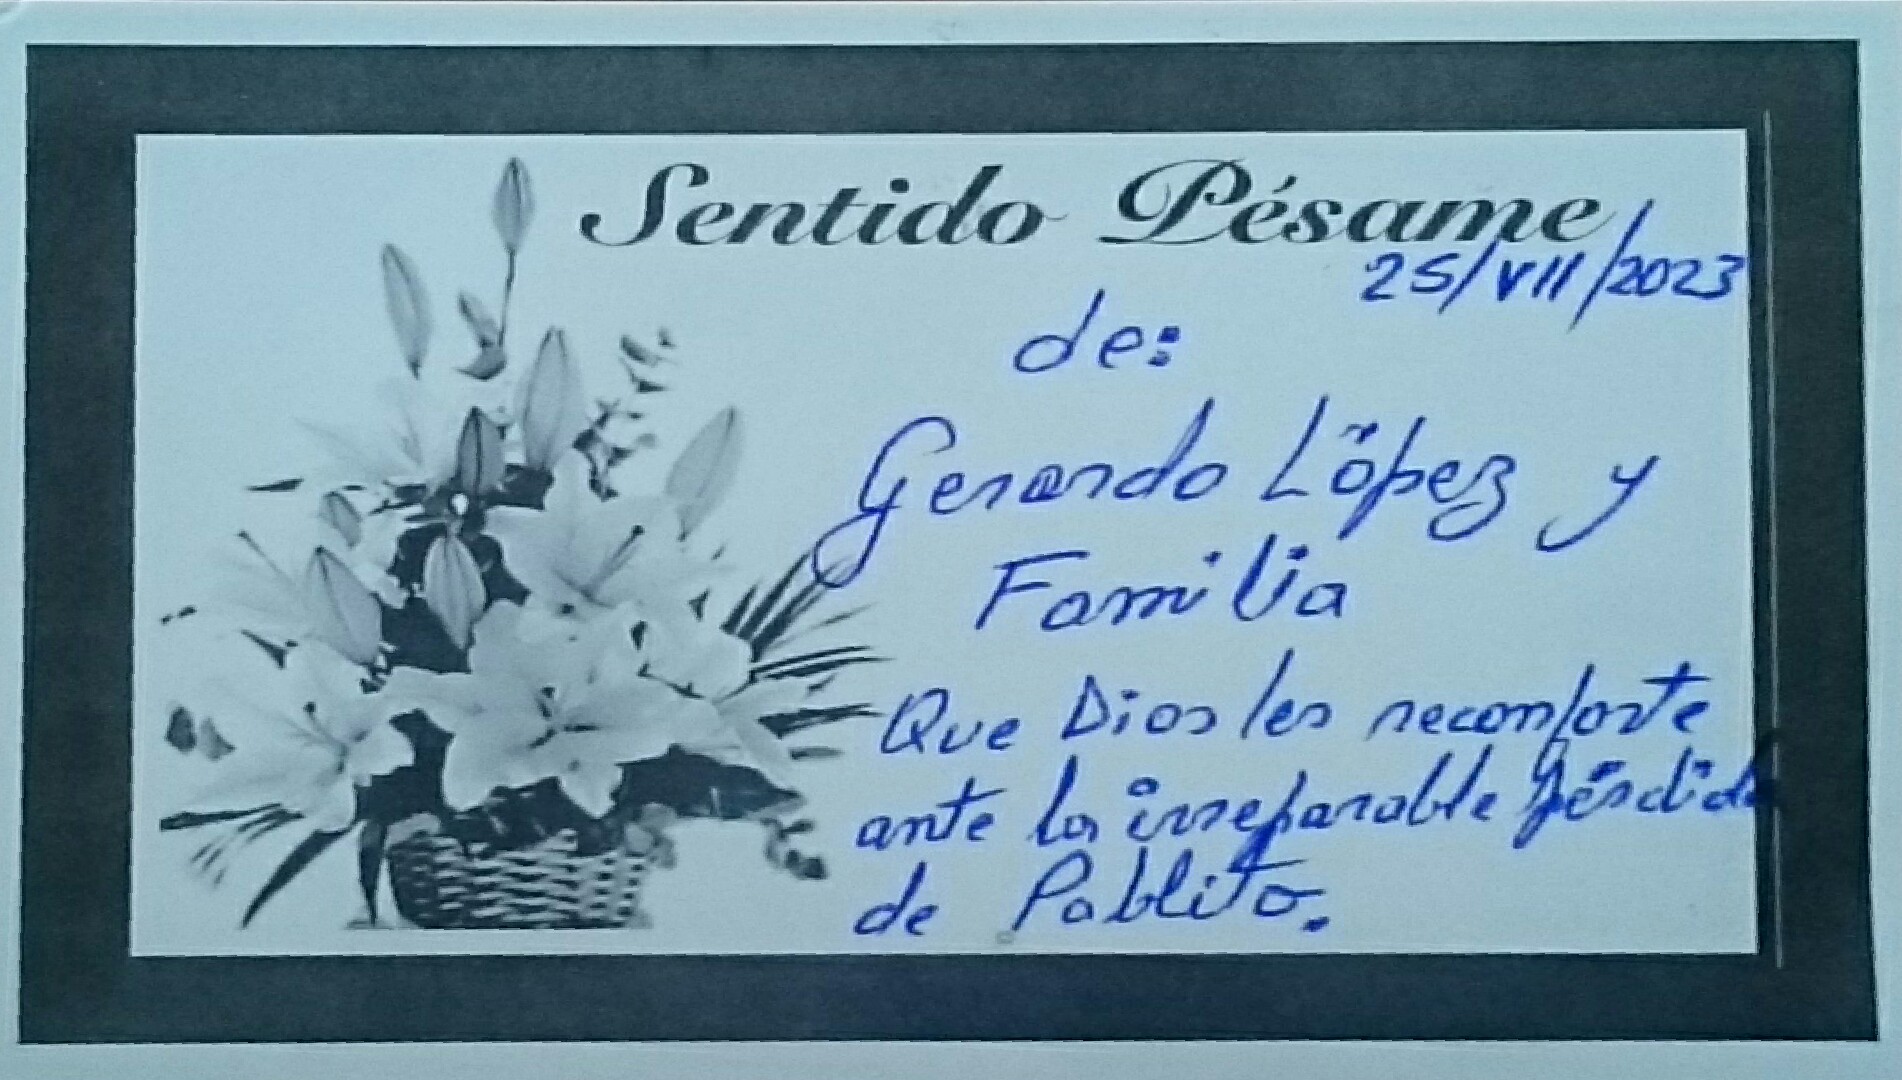 Sentido Pésame
25/VII/2023
de:
Gerardo López y
Familia
Que Dios les reconforte
ante la irreparable pérdida
de Pablito.